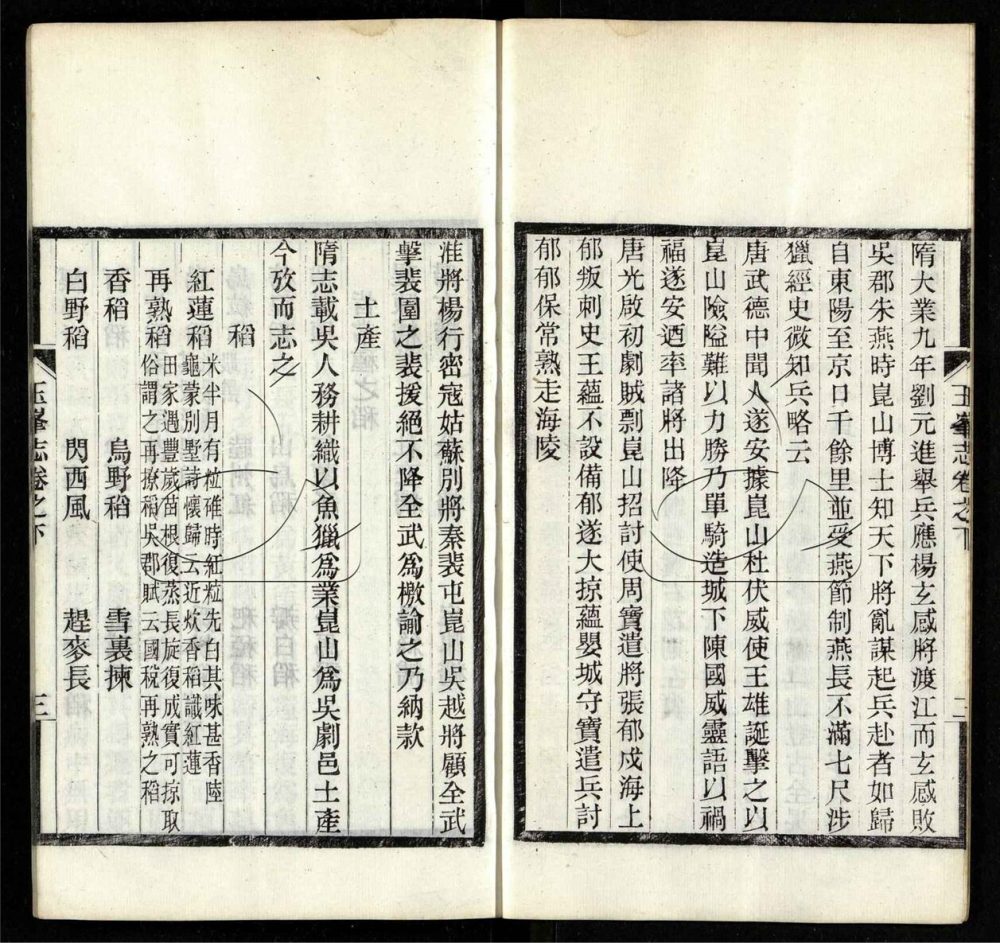 隋大業九年劉元進舉兵應楊玄感將渡江而玄感敗
吳郡朱燕時崑山博士知天下將亂謀起兵赴者如歸
自東陽至京口千餘里並受燕節制燕長不滿七尺涉
獵經史微知兵略云
唐武德中聞人遂安據崑山杜伏威使王雄誕擊之以
崑山險隘難以力勝乃單騎造城下陳國威靈語以禍
福遂安迺率諸將出降
唐光啟初劇賊剽崑山招討使周寶遣將張郁戍海上
郁叛刺史王蘊不設備郁遂大掠蘊嬰城守寶遣兵討
郁郁保常熟走海陵
玉峯志卷之下
二
淮將楊行密寇姑蘇別將秦裴屯崑山吳越將顧全武
擊裴圍之裴援絕不降全武爲檄諭之乃納款
土產
隋志載吳人務耕織以魚獵爲業崑山爲吳劇邑土產
今攷而志之
稻
紅蓮稻米半月有粒碓時紅粒先白其味甚香陸
龜蒙別墅詩懷歸云近炊香稻識紅蓮
再熟稻田家遇豐歲苗根復蒸長旋復成實可掠取
俗謂之再撩稻吳郡賦云國稅再熟之稻
香稻 烏野稻 雪裏揀
白野稻 閃西風 趕麥長
玉峯志卷之下
三